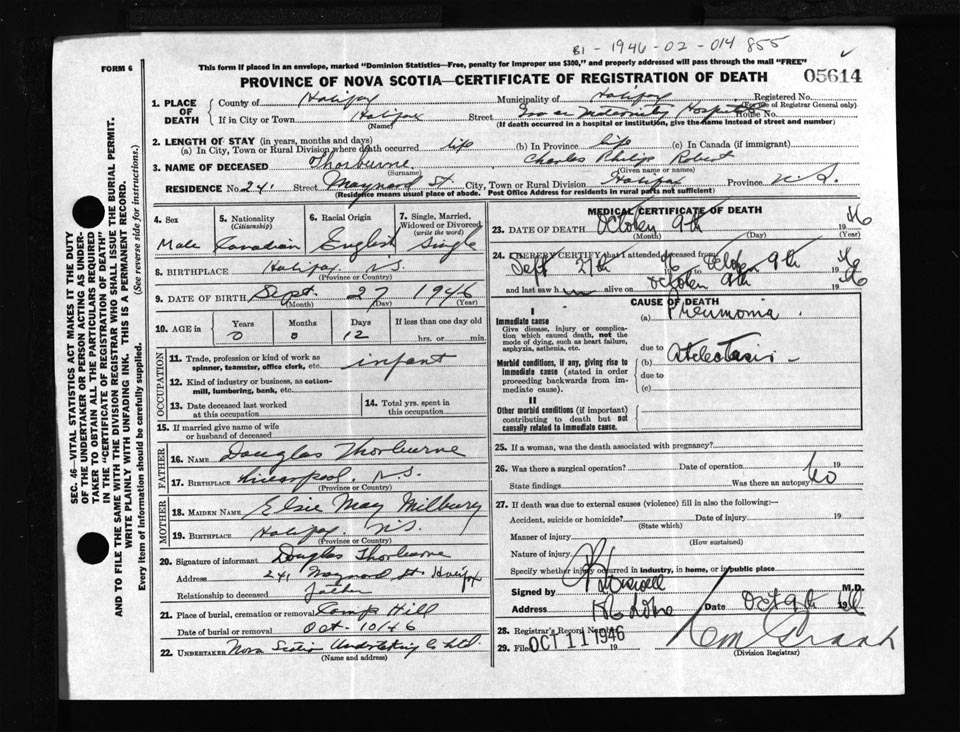 B1 - 1946 - 02 - 014 855
FORM 6
This form if placed in an envelope, marked "Dominion Statistics—Free, penalty for improper use $300," and properly addressed will pass through the mail "FREE"
PROVINCE OF NOVA SCOTIA—CERTIFICATE OF REGISTRATION OF DEATH
05614
1. PLACE OF DEATH
County of Halifax Municipality of Halifax Registered No.
(For use of Registrar General only)
If in City or Town Halifax Street Maternity Hospital House No.
(Name) (If death occurred in a hospital or institution, give the name instead of street and number)
2. LENGTH OF STAY (in years, months and days)
(a) In City, Town or Rural Division where death occurred life (b) In Province life (c) In Canada (if immigrant)
3. NAME OF DECEASED Thorburne Charles Philip Robert
(Surname) (Given name or names)
RESIDENCE No. 241 Street Maynard St. City, Town or Rural Division Halifax Province N.S.
(Residence means usual place of abode. Post Office Address for residents in rural parts not sufficient)
4. Sex
Male
5. Nationality
(Citizenship)
Canadian
6. Racial Origin
English
7. Single, Married, Widowed or Divorced
(write the word)
Single
8. BIRTHPLACE Halifax N.S.
(Province or Country)
9. DATE OF BIRTH Sept. 27 1946
(Month) (Day) (Year)
10. AGE in
Years Months Days If less than one day old
0 0 12 hrs. or min.
OCCUPATION
11. Trade, profession or kind of work as spinner, teamster, office clerk, etc. infant
12. Kind of industry or business, as cotton-mill, lumbering, bank, etc.
13. Date deceased last worked at this occupation
14. Total yrs. spent in this occupation
15. If married give name of wife or husband of deceased
FATHER
16. NAME Douglas Thorburne
17. BIRTHPLACE Liverpool, N.S.
(Province or Country)
MOTHER
18. MAIDEN NAME Elsie May Milbury
19. BIRTHPLACE Halifax, N.S.
(Province or Country)
20. Signature of informant Douglas Thorburne
Address 241 Maynard St Halifax
Relationship to deceased Father
21. Place of burial, cremation or removal Camp Hill
Date of burial or removal Oct. 10/46
22. UNDERTAKER Nova Scotia Undertaking Co Ltd.
(Name and address)
MEDICAL CERTIFICATE OF DEATH
23. DATE OF DEATH October 9th 1946
(Month) (Day) (Year)
24. I HEREBY CERTIFY that I attended deceased from
Sept 27th 46 October 9th 1946
and last saw him alive on October 9th 1946
CAUSE OF DEATH
I
Immediate cause
Give disease, injury or complication which caused death, not the mode of dying, such as heart failure, asphyxia, asthenia, etc.
(a) Pneumonia
due to
Morbid conditions, if any, giving rise to immediate cause (stated in order proceeding backwards from immediate cause).
(b) Atelectasis
due to
(c)
II
Other morbid conditions (if important) contributing to death but not causally related to immediate cause.
25. If a woman, was the death associated with pregnancy?
26. Was there a surgical operation? Date of operation 19
State findings Was there an autopsy No
27. If death was due to external causes (violence) fill in also the following:—
Accident, suicide or homicide? Date of injury 19
(State which)
Manner of injury
(How sustained)
Nature of injury
Specify whether injury occurred in industry, in home, or in public place
Signed by M.D.
Address Date Oct 9th 1946
28. Registrar's Record Number
29. Filed OCT 11 1946 19
(Division Registrar)
SEC. 46—VITAL STATISTICS ACT MAKES IT THE DUTY
OF THE UNDERTAKER OR PERSON ACTING AS UNDER-
TAKER TO OBTAIN ALL THE PARTICULARS REQUIRED
IN THE "CERTIFICATE OF REGISTRATION OF DEATH"
AND TO FILE THE SAME WITH THE DIVISION REGISTRAR WHO SHALL ISSUE THE BURIAL PERMIT.
WRITE PLAINLY WITH UNFADING INK. THIS IS A PERMANENT RECORD.
Every item of information should be carefully supplied. (See reverse side for instructions.)